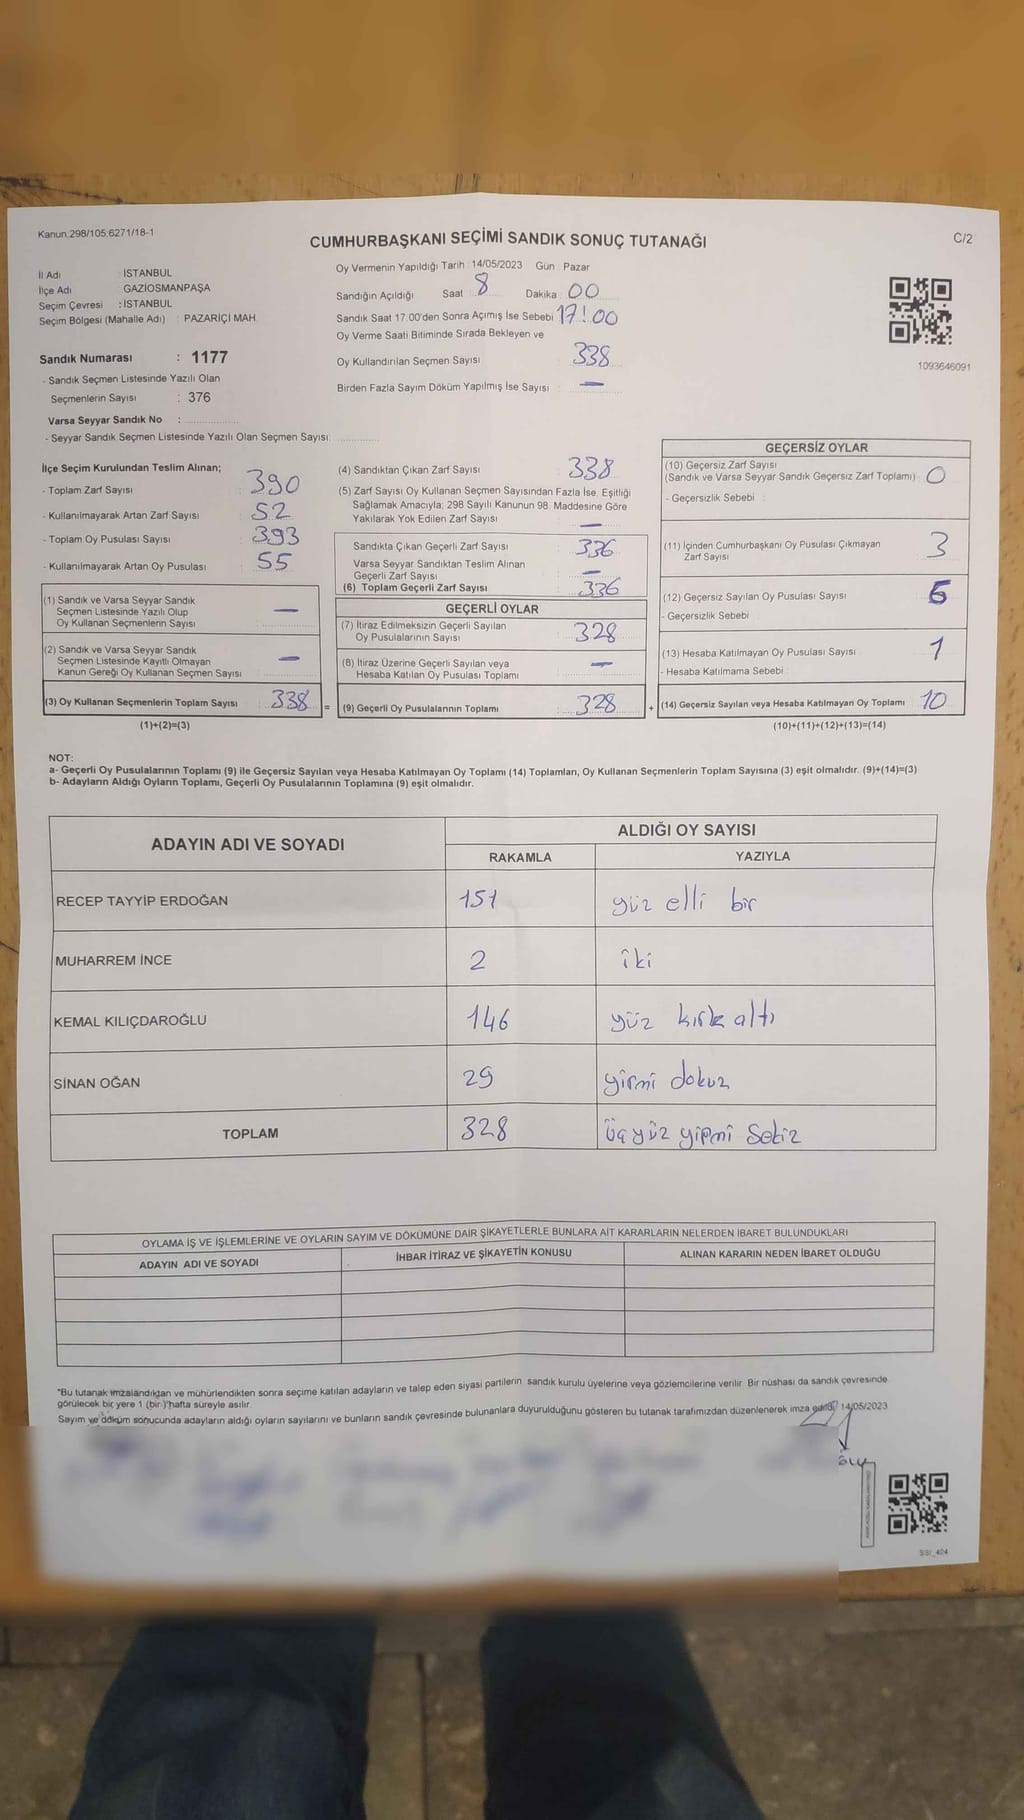 Kanun:298/105;6271/18-1
C/2
CUMHURBAŞKANI SEÇİMİ SANDIK SONUÇ TUTANAĞI
İl Adı : İSTANBUL
İlçe Adı : GAZİOSMANPAŞA
Seçim Çevresi : İSTANBUL
Seçim Bölgesi (Mahalle Adı) : PAZARİÇİ MAH.
Sandık Numarası : 1177
- Sandık Seçmen Listesinde Yazılı Olan
Seçmenlerin Sayısı : 376
Varsa Seyyar Sandık No :
- Seyyar Sandık Seçmen Listesinde Yazılı Olan Seçmen Sayısı:
Oy Vermenin Yapıldığı Tarih : 14/05/2023 Gün : Pazar
Sandığın Açıldığı Saat : 8 Dakika : 00
Sandık Saat 17.00'den Sonra Açımış İse Sebebi 17:00
Oy Verme Saati Bitiminde Sırada Bekleyen ve
Oy Kullandırılan Seçmen Sayısı : 338
Birden Fazla Sayım Döküm Yapılmış İse Sayısı : —
1093646091
İlçe Seçim Kurulundan Teslim Alınan;
- Toplam Zarf Sayısı : 390
- Kullanılmayarak Artan Zarf Sayısı : 52
- Toplam Oy Pusulası Sayısı : 393
- Kullanılmayarak Artan Oy Pusulası : 55
(1) Sandık ve Varsa Seyyar Sandık
Seçmen Listesinde Yazılı Olup
Oy Kullanan Seçmenlerin Sayısı : —
(2) Sandık ve Varsa Seyyar Sandık
Seçmen Listesinde Kayıtlı Olmayan
Kanun Gereği Oy Kullanan Seçmen Sayısı : —
(3) Oy Kullanan Seçmenlerin Toplam Sayısı : 338
(1)+(2)=(3)
=
(4) Sandıktan Çıkan Zarf Sayısı : 338
(5) Zarf Sayısı Oy Kullanan Seçmen Sayısından Fazla İse, Eşitliği
Sağlamak Amacıyla; 298 Sayılı Kanunun 98. Maddesine Göre
Yakılarak Yok Edilen Zarf Sayısı : —
Sandıkta Çıkan Geçerli Zarf Sayısı : 336
Varsa Seyyar Sandıktan Teslim Alınan
Geçerli Zarf Sayısı : —
(6) Toplam Geçerli Zarf Sayısı : 336
GEÇERLİ OYLAR
(7) İtiraz Edilmeksizin Geçerli Sayılan
Oy Pusulalarının Sayısı : 328
(8) İtiraz Üzerine Geçerli Sayılan veya
Hesaba Katılan Oy Pusulası Toplamı : —
(9) Geçerli Oy Pusulalarının Toplamı : 328
+
GEÇERSİZ OYLAR
(10) Geçersiz Zarf Sayısı
(Sandık ve Varsa Seyyar Sandık Geçersiz Zarf Toplamı) : 0
- Geçersizlik Sebebi :
(11) İçinden Cumhurbaşkanı Oy Pusulası Çıkmayan
Zarf Sayısı : 3
(12) Geçersiz Sayılan Oy Pusulası Sayısı : 6
- Geçersizlik Sebebi :
(13) Hesaba Katılmayan Oy Pusulası Sayısı : 1
- Hesaba Katılmama Sebebi :
(14) Geçersiz Sayılan veya Hesaba Katılmayan Oy Toplamı : 10
(10)+(11)+(12)+(13)=(14)
NOT:
a- Geçerli Oy Pusulalarının Toplamı (9) ile Geçersiz Sayılan veya Hesaba Katılmayan Oy Toplamı (14) Toplamları, Oy Kullanan Seçmenlerin Toplam Sayısına (3) eşit olmalıdır. (9)+(14)=(3)
b- Adayların Aldığı Oyların Toplamı, Geçerli Oy Pusulalarının Toplamına (9) eşit olmalıdır.
ADAYIN ADI VE SOYADI
ALDIĞI OY SAYISI
RAKAMLA YAZIYLA
RECEP TAYYİP ERDOĞAN 151 yüz elli bir
MUHARREM İNCE 2 iki
KEMAL KILIÇDAROĞLU 146 yüz kırk altı
SİNAN OĞAN 29 yirmi dokuz
TOPLAM 328 üçyüz yirmi sekiz
OYLAMA İŞ VE İŞLEMLERİNE VE OYLARIN SAYIM VE DÖKÜMÜNE DAİR ŞİKAYETLERLE BUNLARA AİT KARARLARIN NELERDEN İBARET BULUNDUKLARI
ADAYIN ADI VE SOYADI İHBAR İTİRAZ VE ŞİKAYETİN KONUSU ALINAN KARARIN NEDEN İBARET OLDUĞU
*Bu tutanak imzalandıktan ve mühürlendikten sonra seçime katılan adayların ve talep eden siyasi partilerin sandık kurulu üyelerine veya gözlemcilerine verilir. Bir nüshası da sandık çevresinde
görülecek bir yere 1 (bir) hafta süreyle asılır.
Sayım ve döküm sonucunda adayların aldığı oyların sayılarını ve bunların sandık çevresinde bulunanlara duyurulduğunu gösteren bu tutanak tarafımızdan düzenlenerek imza edildi. 14/05/2023
SSI_404